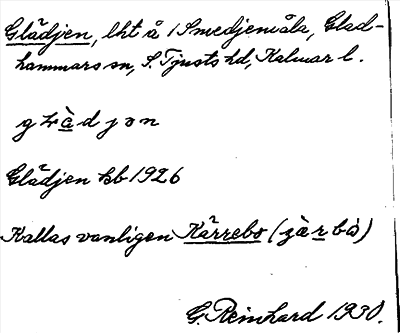 Glädjen, lht å 1 Smedjemåla, Glad-
hammars sn, S. Tjusts hd, Kalmar l.
Glädjen kb 1926
Kallas vanligen Kärrebo
G. Reinhard 1930.